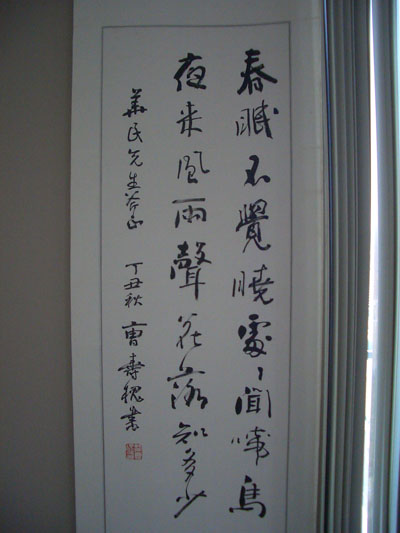 春眠不覺曉處々聞啼鳥
夜来風雨聲花落知多少
華民先生斧正 丁丑秋 曹壽槐業